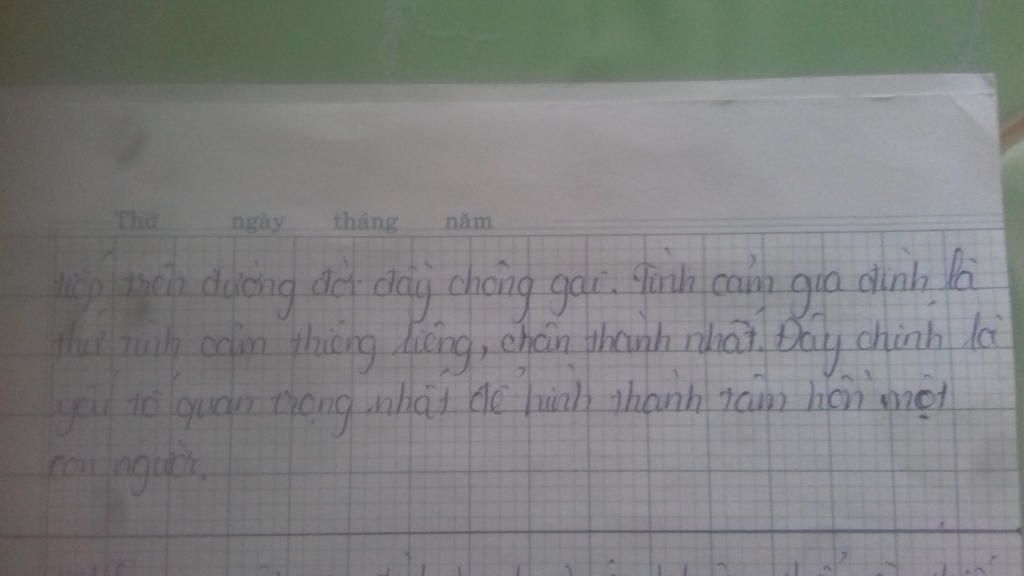 Thứ ngày tháng năm
tiếp trên đường đời đầy chông gai. Tình cảm gia đình là
thứ tình cảm thiêng liêng, chân thành nhất. Đây chính là
yếu tố quan trọng nhất để hình thành tâm hồn một
con người.